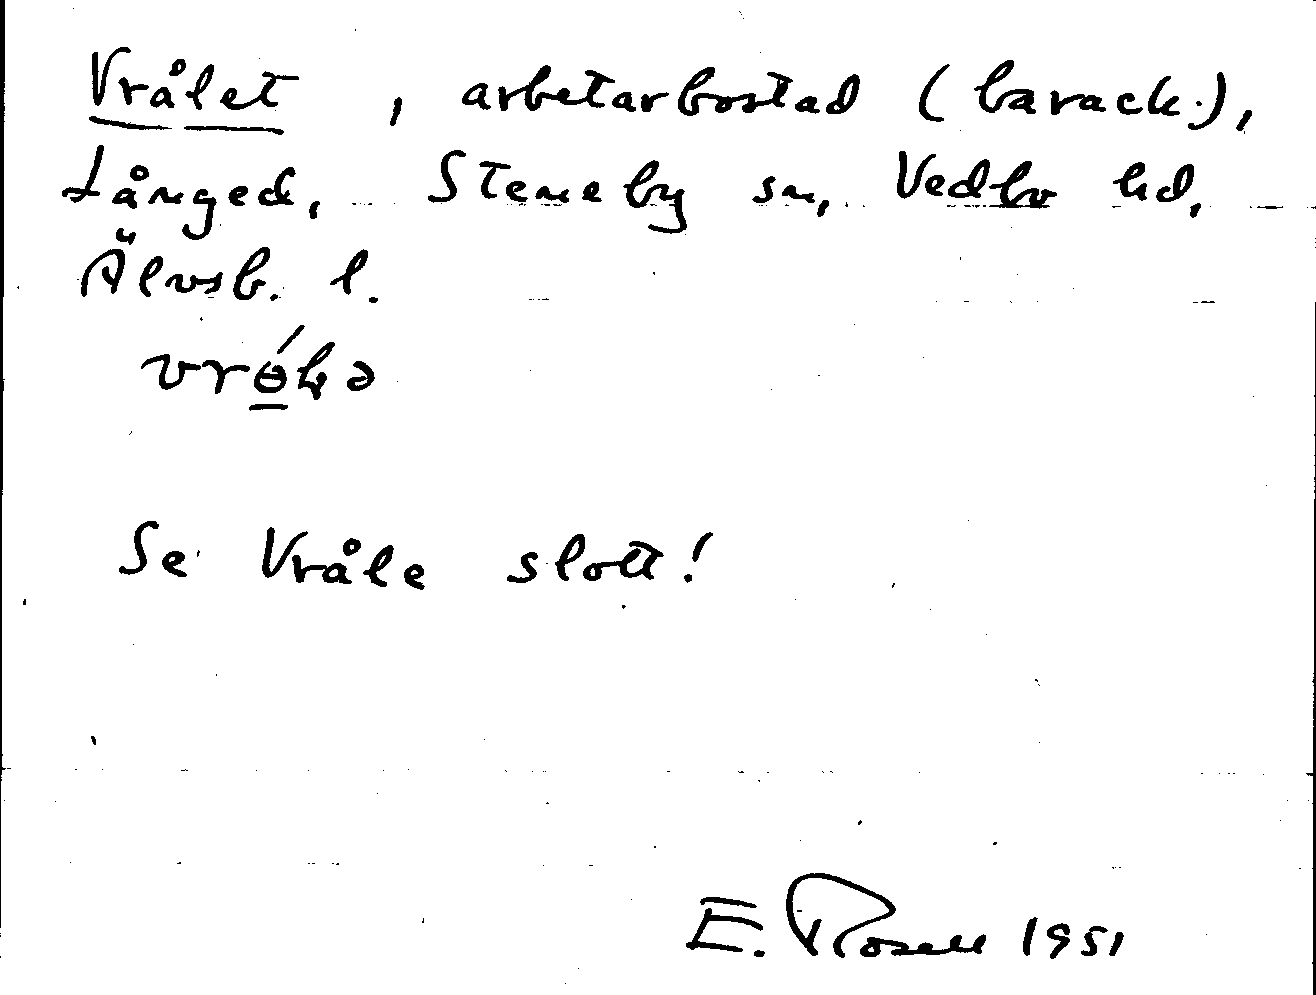 Vrålet, arbetarbostad (barack),
Långed, Steneby sn, Vedbo hd,
Älvsb. l.
Se Vråle slott!
E. Rosell 1951